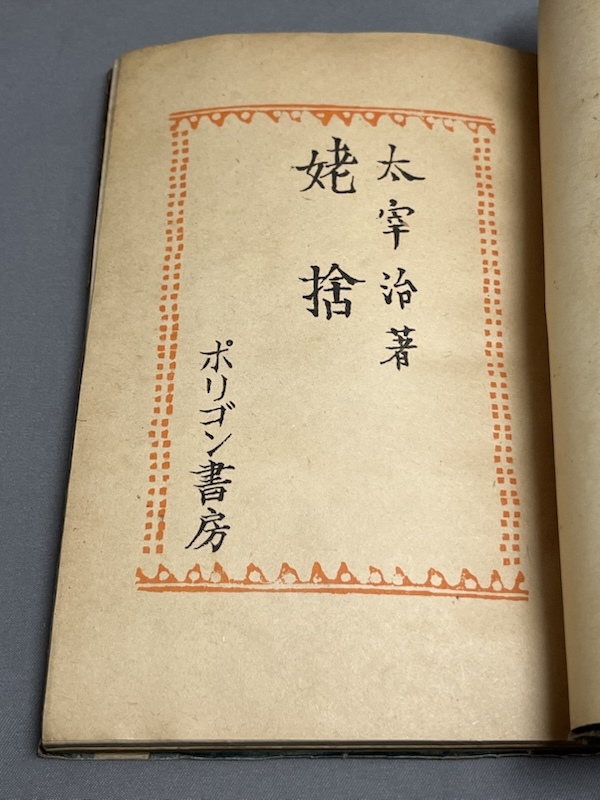 太宰治著
姥捨
ポリゴン書房